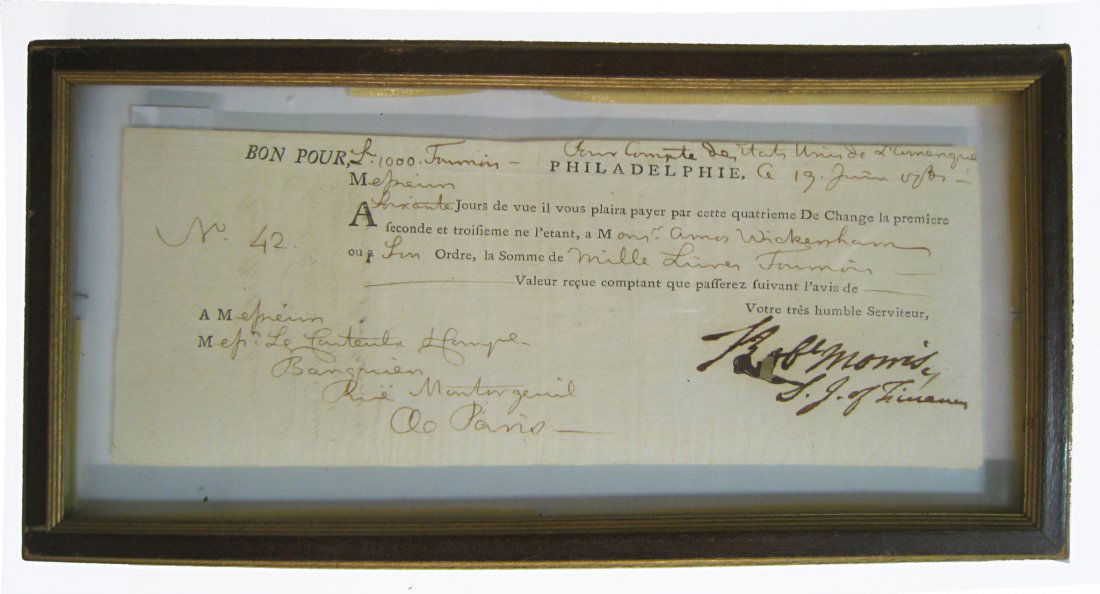 BON POUR, £. 1000. Tournois – Pour Compte des Etats Unis de L'Amerique
PHILADELPHIE, Ce 19. Juin
Messieurs
A Soixante Jours de vue il vous plaira payer par cette quatrieme De Change la premiere
No. 42. seconde et troisieme ne l'etant, a Monsr. Amos Wickersham
ou a Son Ordre, la Somme de Mille Livres Tournois —
Valeur reçue comptant que passerez suivant l'avis de
Votre très humble Serviteur,
A Messieurs
Messrs. Le Couteulx & Compe.
Banquiers
Ruë Montorgeuil
A Paris —
Robt Morris
S. J. of Finance